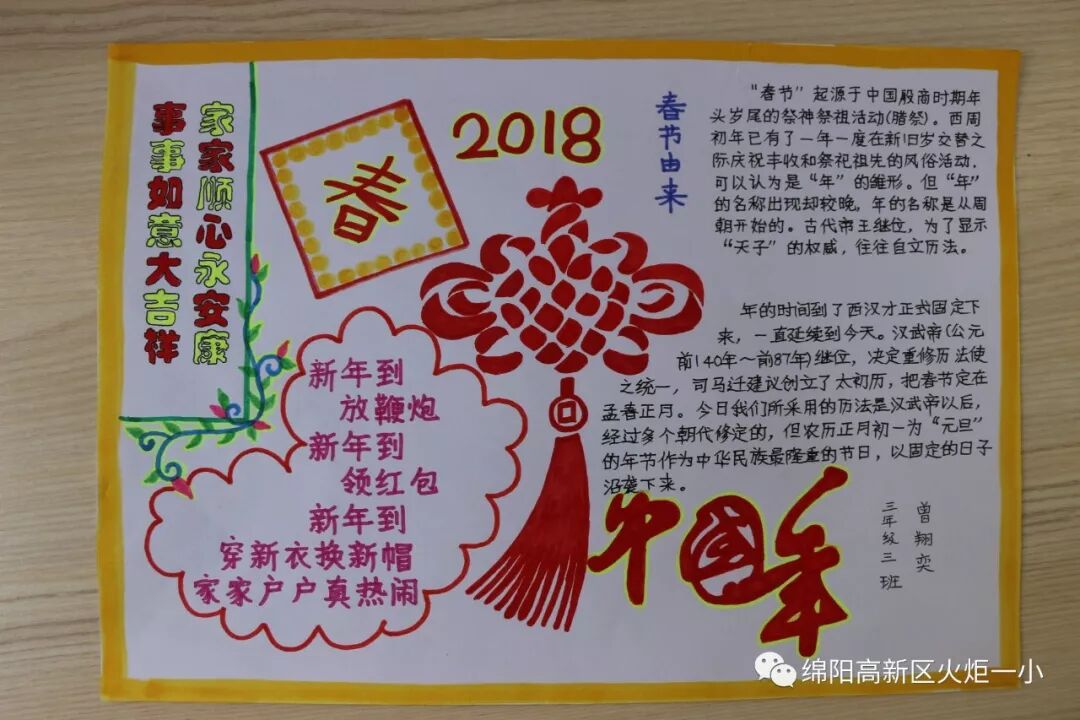 家家顺心永安康
事事如意大吉祥
春
2018
春节由来
“春节”起源于中国殷商时期年
头岁尾的祭神祭祖活动(腊祭)。西周
初年已有了一年一度在新旧岁交替之
际庆祝丰收和祭祀祖先的风俗活动,
可以认为是“年”的雏形。但“年”
的名称出现却较晚。年的名称是从周
朝开始的。古代帝王继位，为了显示
“天子”的权威，往往自立历法。
年的时间到了西汉才正式固定下
来，一直延续到今天。汉武帝(公元
前140年～前87年)继位，决定重修历法使
之统一，司马迁建议创立了太初历，把春节定在
孟春正月。今日我们所采用的历法是汉武帝以后,
经过多个朝代修定的，但农历正月初一为“元旦”
的年节作为中华民族最隆重的节日，以固定的日子
沿袭下来。
新年到
放鞭炮
新年到
领红包
新年到
穿新衣换新帽
家家户户真热闹
中国年
曾翔奕
三年级三班
绵阳高新区火炬一小